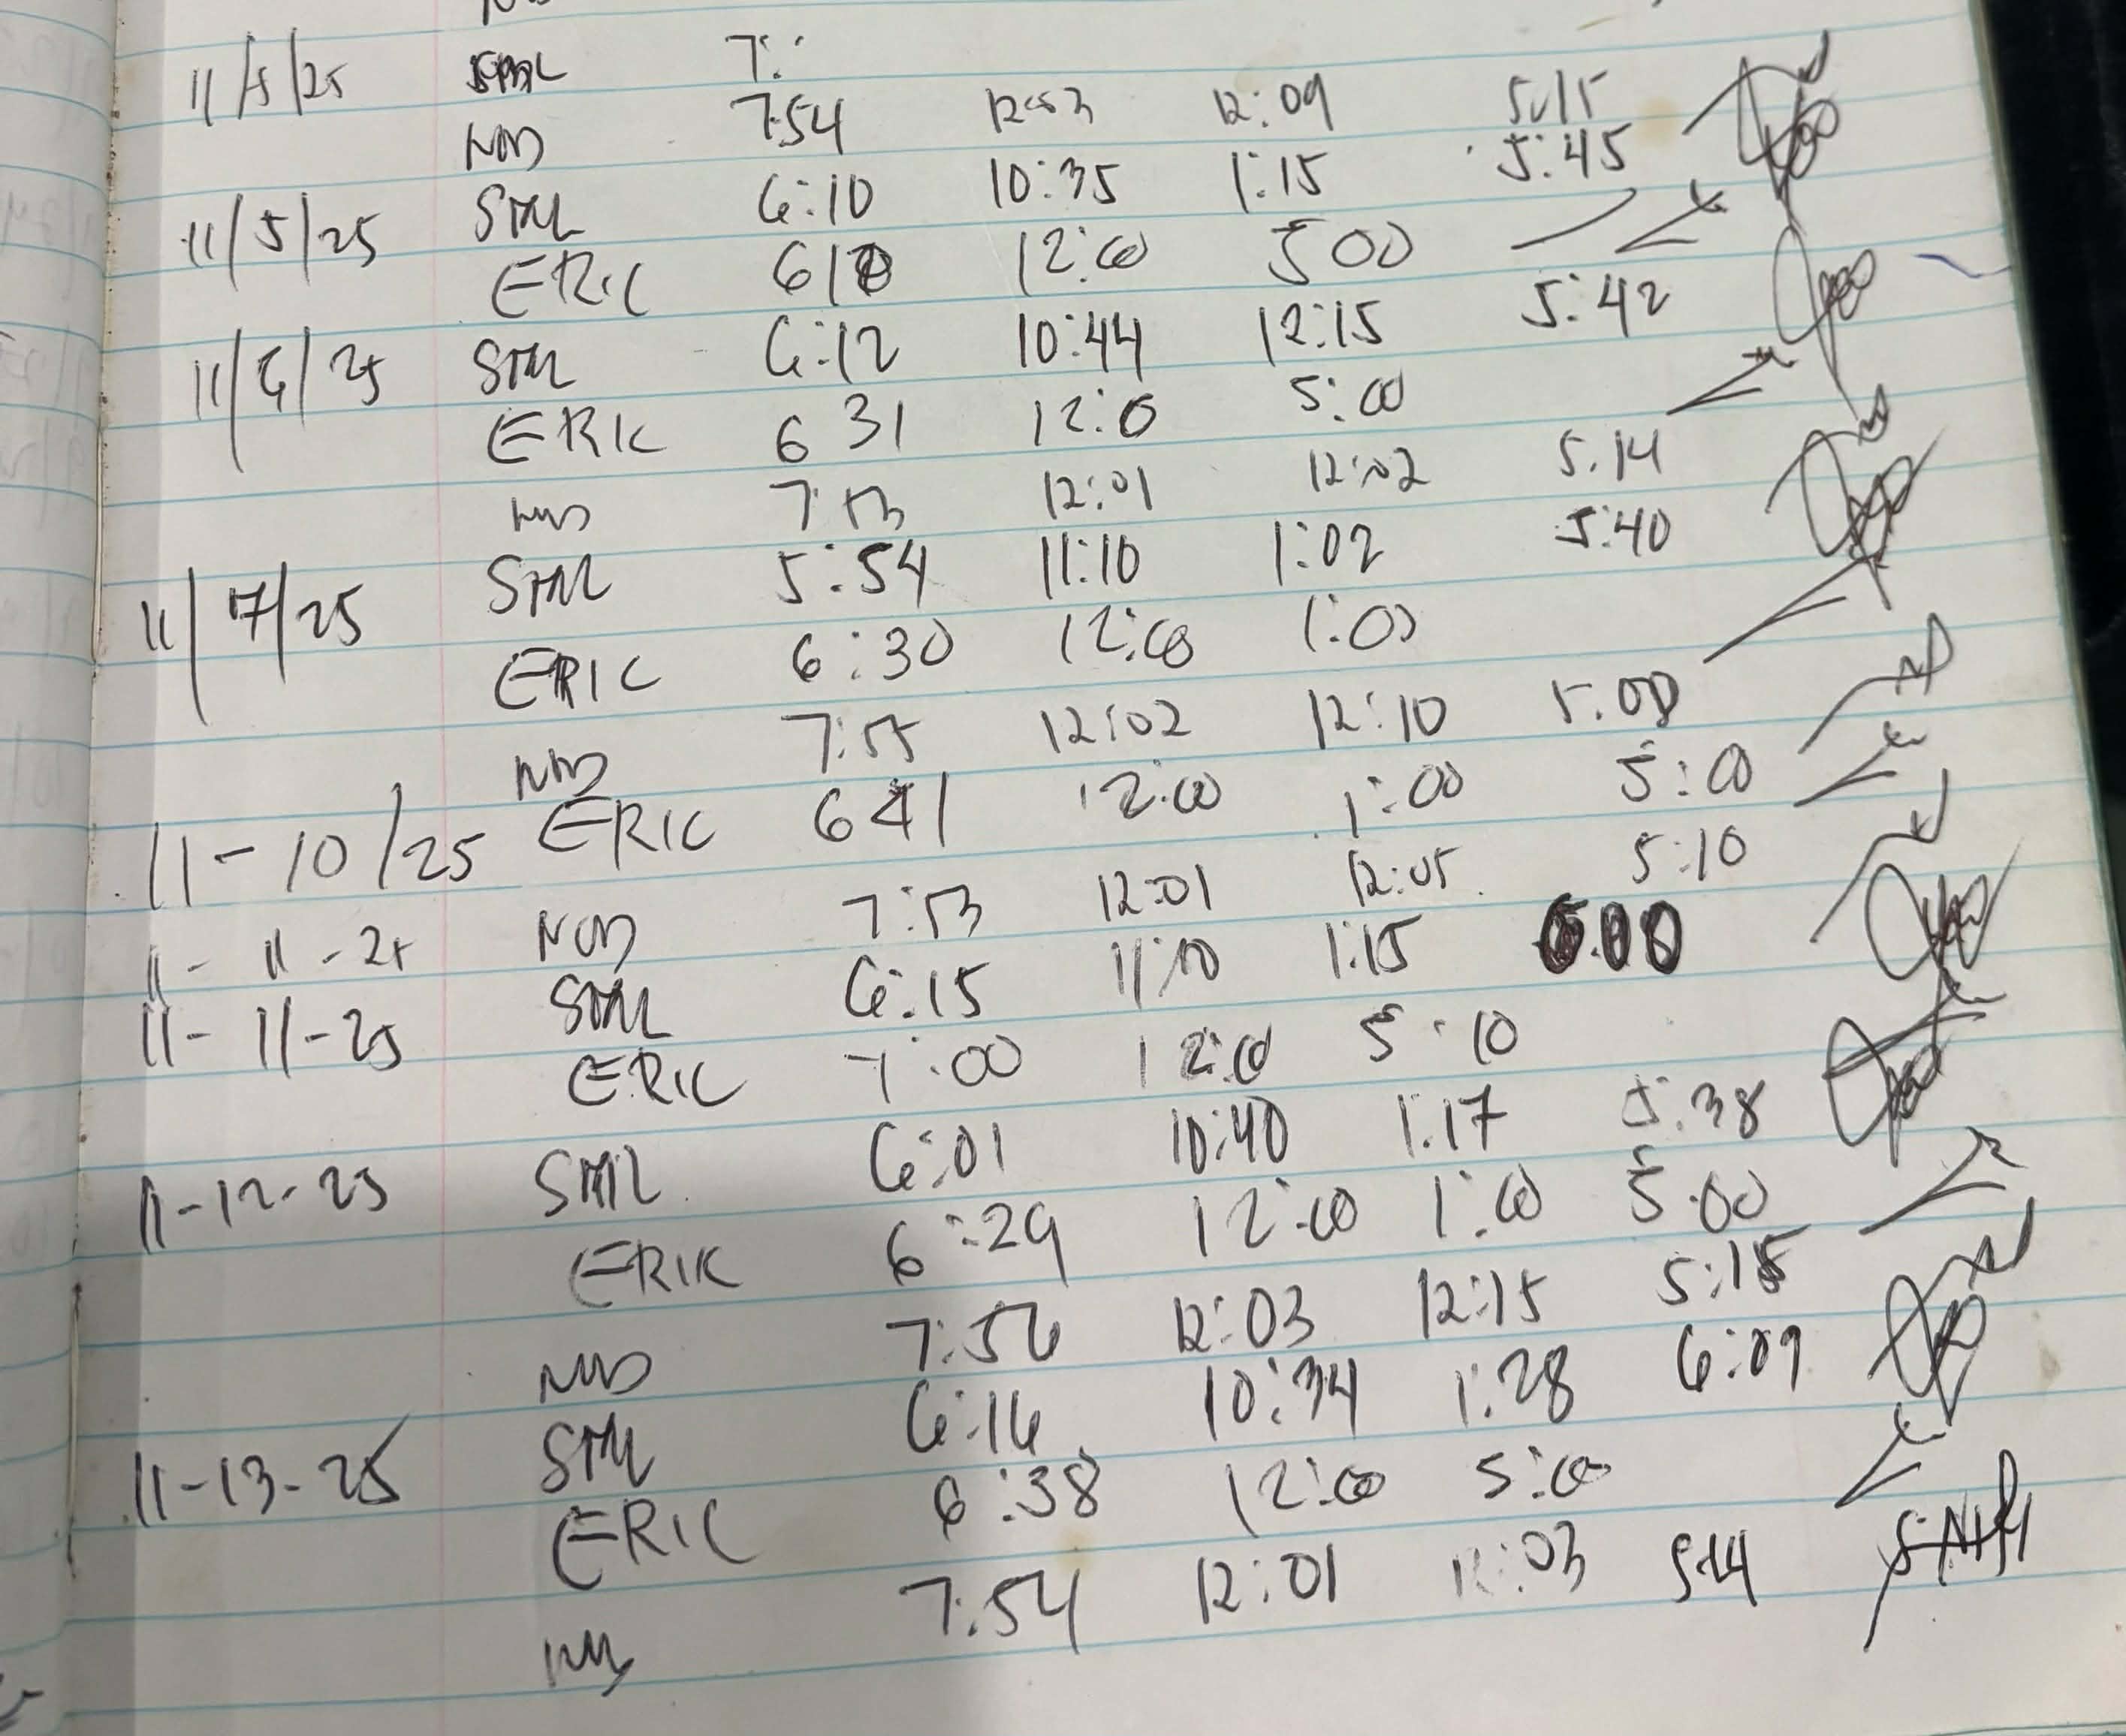 11/5/25 7:
NB 7:54 12:03 12:09 5:15
11/5/25 STML 6:10 10:35 1:15 5:45
ERIC 12:00 5 00
11/6/25 STML 6:12 10:44 12:15 5:42
ERIC 6 31 12:0 5:00
NB 7:53 12:01 12:02 5:14
11/7/25 STML 5:54 11:10 1:02 5:40
ERIC 6:30 12:00 1:00
NB 7:55 12:02 12:10 5:00
11-10/25 ERIC 6 41 12:00 1:00 5:00
11-11-25 NB 7:53 12:01 12:05 5:10
11-11-25 STML 6:15 11:10 1:15
ERIC 7:00 12:00 5:10
11-12-25 STML 6:01 10:40 1:17 5:38
ERIC 6:29 12:00 1:00 5:00
NB 7:56 12:03 12:15 5:15
11-13-25 STML 6:16 10:34 1:28 6:09
ERIC 6:38 12:00 5:00
NB 7:54 12:01 12:03 5:14